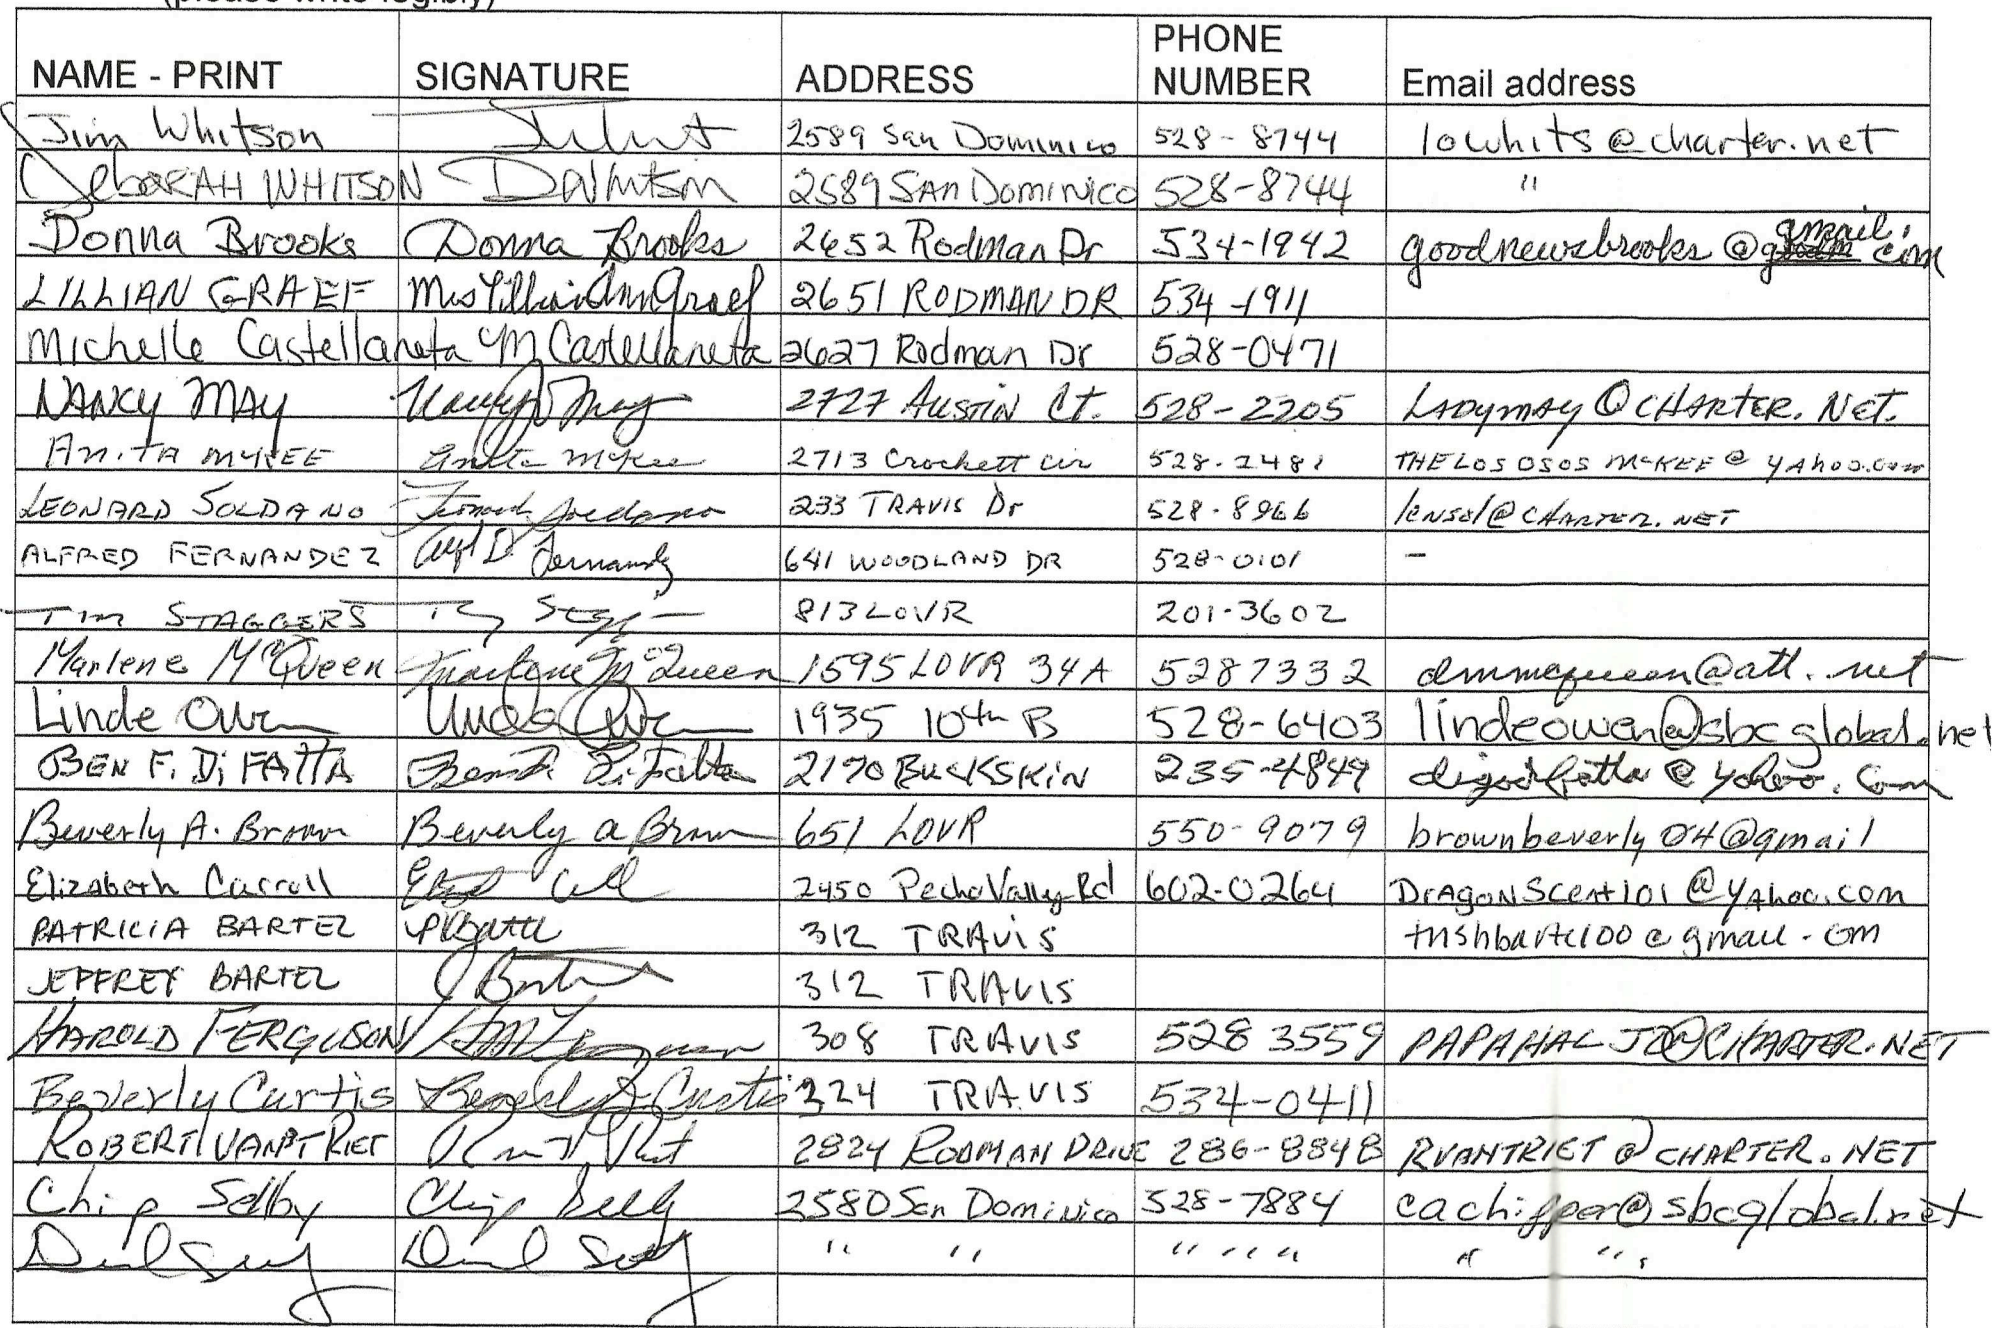 (please write legibly)
NAME - PRINT SIGNATURE ADDRESS PHONE NUMBER Email address
Jim Whitson 2589 San Dominico 528-8744 lowhits@charter.net
DebORAH WHITSON DWhitson 2589 SAN DOMINICO 528-8744 "
Donna Brooks Donna Brooks 2652 Rodman Dr 534-1942 goodnewsbrooks@gmail.com
LILLIAN GRAEF Mrs Lillian Ann Graef 2651 RODMAN DR 534-1911
Michelle Castellaneta M Castellaneta 2627 Rodman Dr 528-0471
NANCY MAY Nancy May 2727 AUSTIN Ct. 528-2205 LADYMAY@CHARTER.NET.
ANITA MCKEE Anita McKee 2713 Crockett cir 528-2481 THELOSOSOSMCKEE@YAHOO.COM
LEONARD SOLDANO Leonard Soldano 233 TRAVIS Dr 528-8966 lensol@CHARTER.NET
ALFRED FERNANDEZ Alf D. Fernandez 641 WOODLAND DR 528-0101 -
TIM STAGGERS 813 LOVR 201-3602
Marlene McQueen Marlene McQueen 1595 LOVR 34A 5287332 dmmcqueen@att.net
Linde Owen Linde Owen 1935 10th B 528-6403 lindeowen@sbcglobal.net
BEN F. Di FATTA Ben F. Di Fatta 2170 BUCKSKIN 235-4849 @yahoo.com
Beverly A. Brown Beverly A Brown 651 LOVR 550-9079 brownbeverly04@gmail
Elizabeth Carroll 2450 Pecho Valley Rd 602-0264 DrAgonScent101@YAhoo.com
PATRICIA BARTEL PBartel 312 TRAVIS trishbartel00@gmail.com
JEFFREY BARTEL 312 TRAVIS
HAROLD FERGUSON HM Ferguson 308 TRAVIS 528 3559 PAPAHALJO@CHARTER.NET
Beverly Curtis Beverly Curtis 324 TRAVIS 534-0411
ROBERT VAN'T RIET 2824 RODMAN DRIVE 286-8848 RVANTRIET@CHARTER.NET
Chip Selby Chip Selby 2580 San Dominico 528-7884 cachipper@sbcglobal.net
" " " " " " "